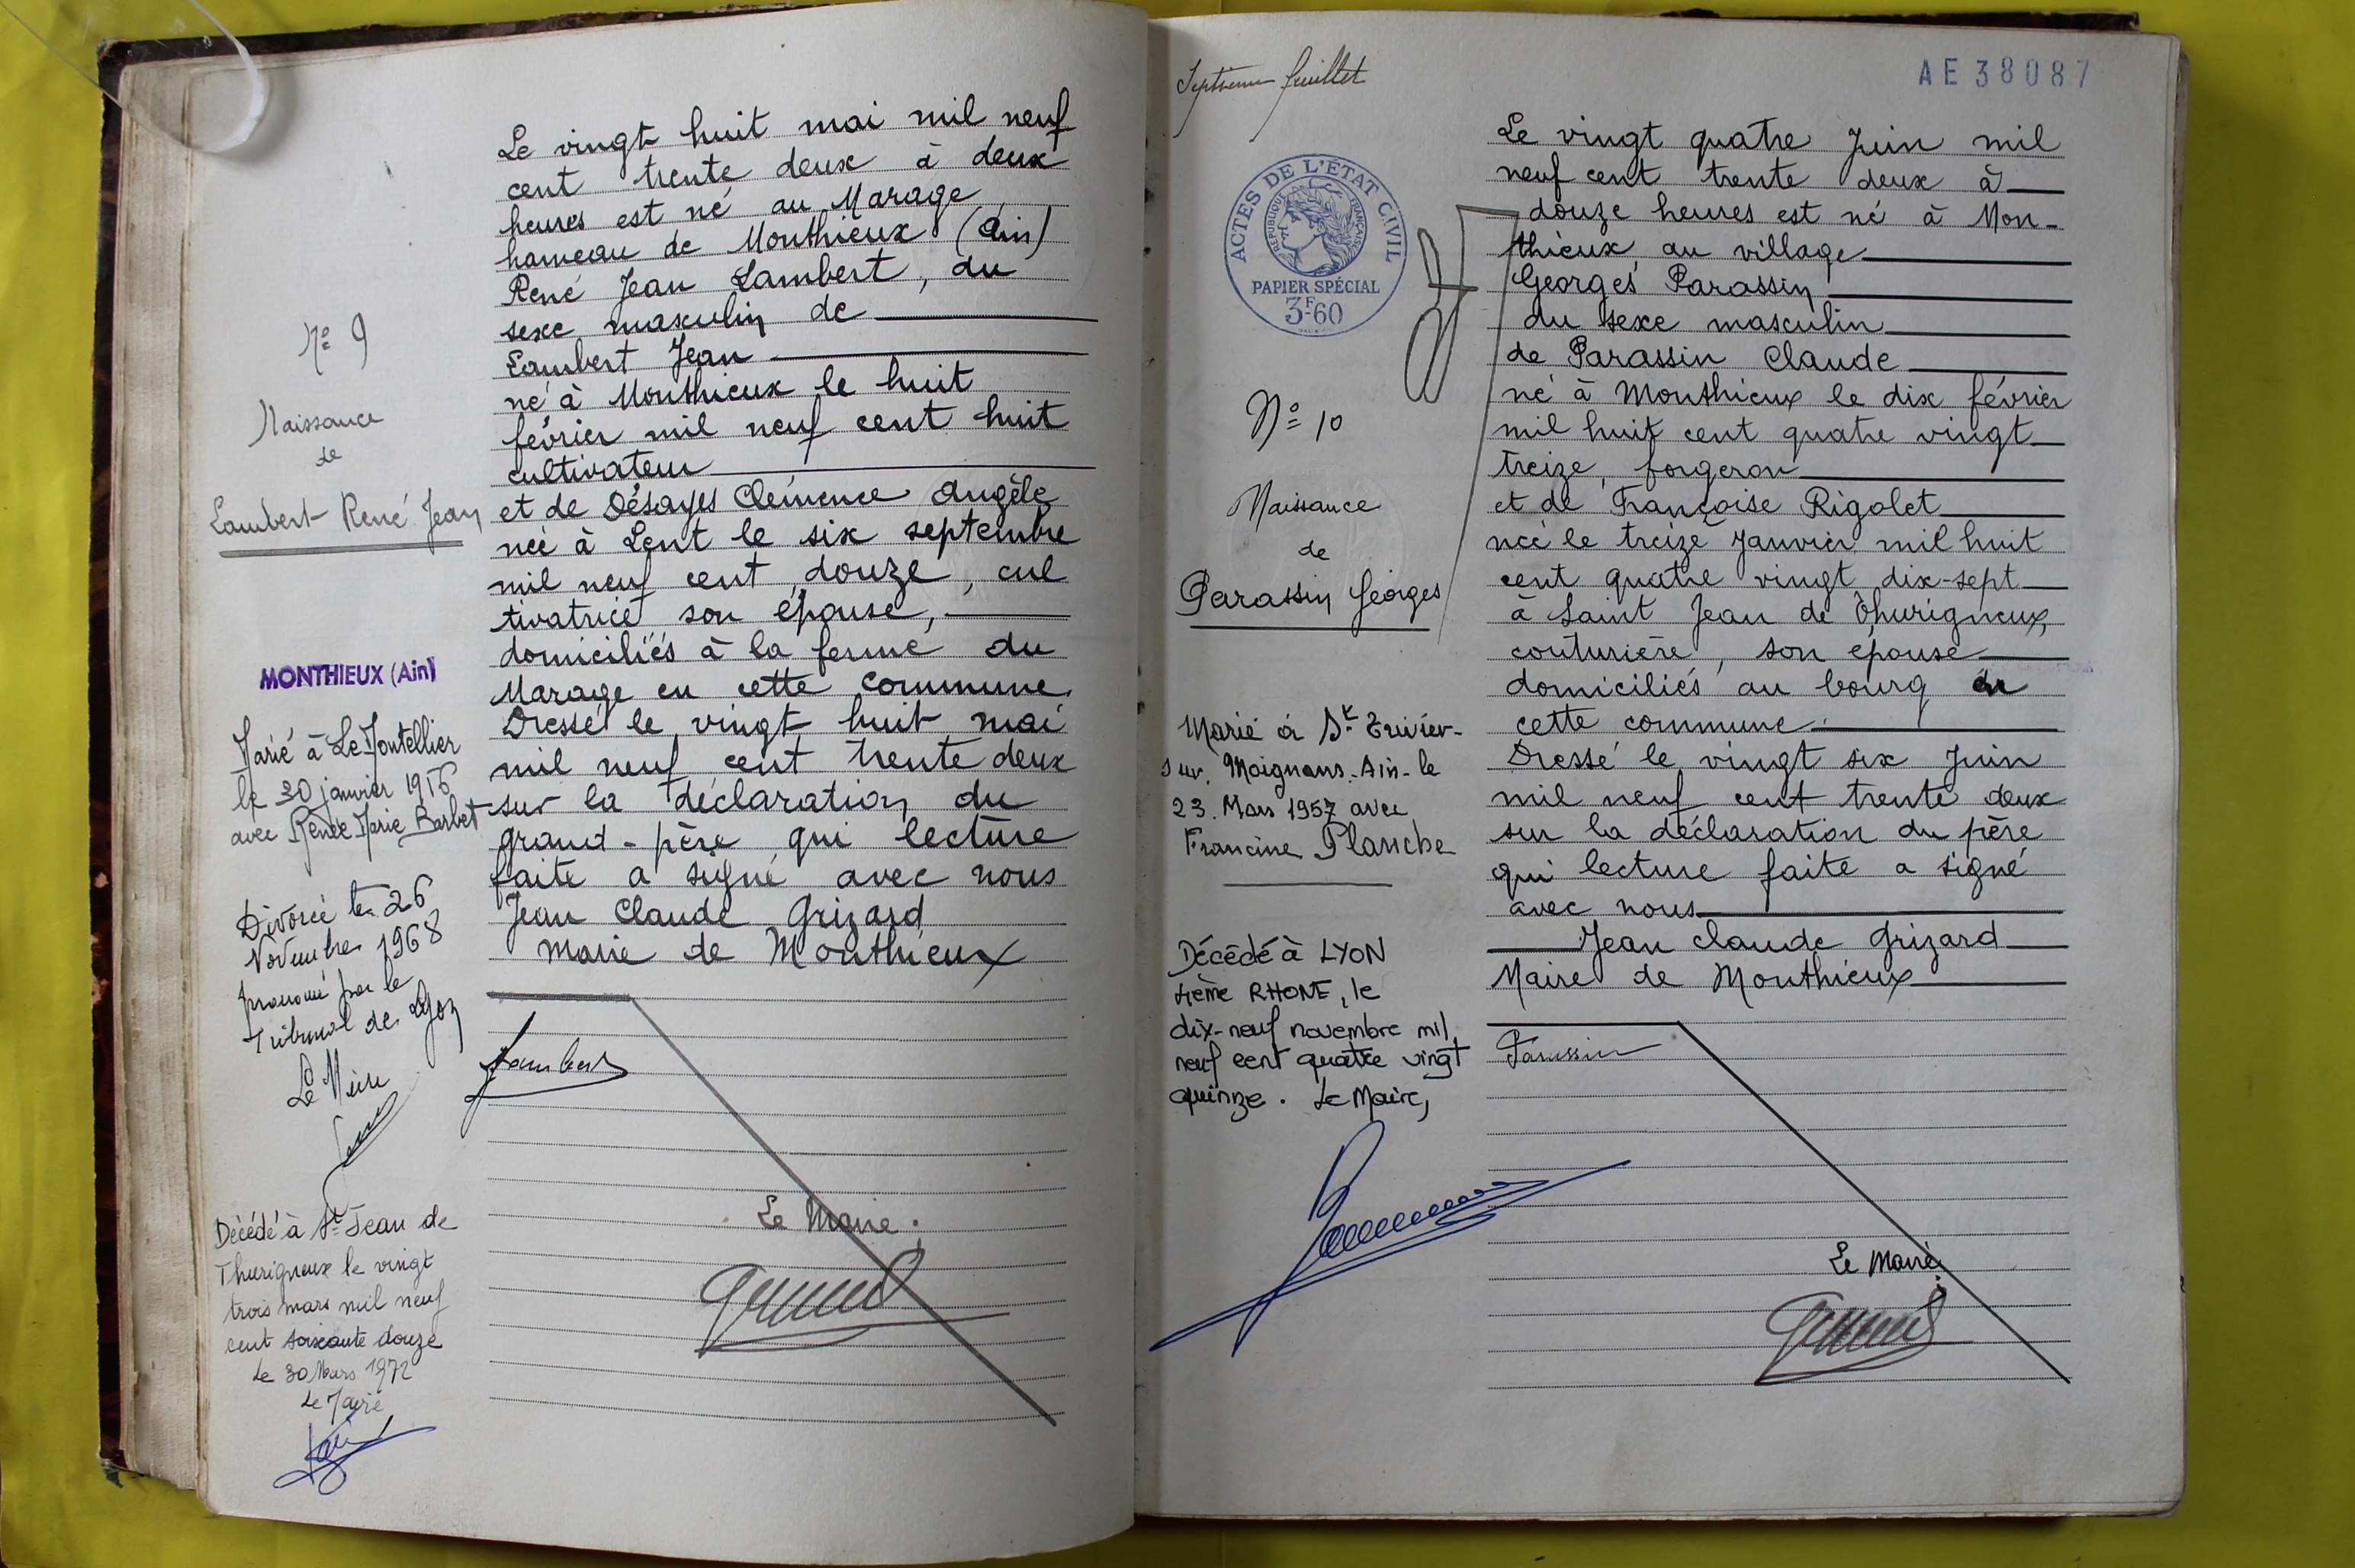 N° 9
Naissance
de
Lambert René Jean
MONTHIEUX (Ain)
Marié à Le Montellier
le 30 janvier 1956
avec Renée Marie Barbet
Divorcé le 26
Novembre 1968
prononcé par le
Tribunal de Lyon
Le Maire
Décédé à St Jean de
Thurigneux le vingt
trois mars mil neuf
cent soixante douze
Le 30 Mars 1972
Le Maire
Le vingt huit mai mil neuf
cent trente deux à deux
heures est né au Marage
hameau de Monthieux (Ain)
René Jean Lambert, du
sexe masculin de
Lambert Jean
né à Monthieux le huit
février mil neuf cent huit
cultivateur
et de Désayes Clémence Angèle
née à Lent le six septembre
mil neuf cent douze, cul
tivatrice son épouse,
domiciliés à la ferme du
Marage en cette commune.
Dressé le vingt huit mai
mil neuf cent trente deux
sur la déclaration du
grand-père qui lecture
faite a signé avec nous
Jean Claude Grizard
Maire de Monthieux
Lambert
Le Maire.
Septième feuillet
AE 38087
ACTES DE L'ÉTAT CIVIL
RÉPUBLIQUE FRANÇAISE
PAPIER SPÉCIAL
3F60
N° 10
Naissance
de
Parassin Georges
Marié à St Trivier-
sur. Moignans-Ain-le
23. Mars 1957 avec
Francine Planche
Décédé à LYON
4ème RHONE, le
dix-neuf novembre mil
neuf cent quatre vingt
quinze. Le Maire,
Le vingt quatre Juin mil
neuf cent trente deux à
douze heures est né à Mon-
thieux au village
Georges Parassin
du sexe masculin
de Parassin Claude
né à Monthieux le dix février
mil huit cent quatre vingt
treize, forgeron
et de Françoise Rigolet
née le treize Janvier mil huit
cent quatre vingt dix-sept
à Saint Jean de Thurigneux,
couturière, son épouse
domiciliés au bourg de
cette commune.
Dressé le vingt six Juin
mil neuf cent trente deux
sur la déclaration du père
qui lecture faite a signé
avec nous
Jean Claude Grizard
Maire de Monthieux
Parassin
Le Maire